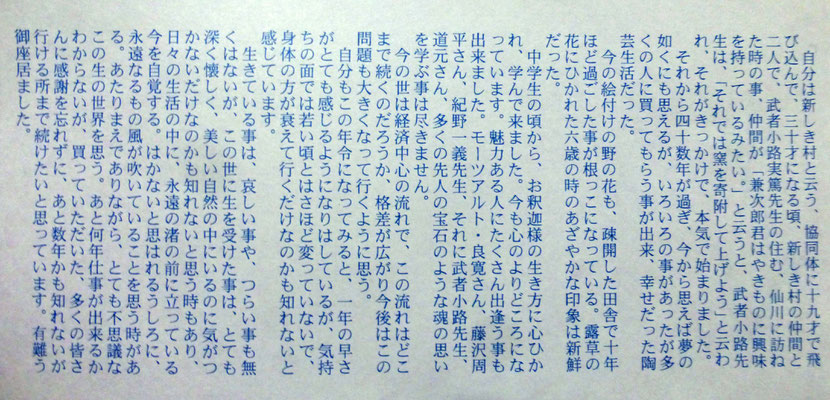 自分は新しき村と云う、協同体に十九才で飛
び込んで、三十才になる頃、新しき村の仲間と
二人で、武者小路実篤先生の住む、仙川に訪ね
た時の事、仲間が「兼次郎君はやきものに興味
を持っているみたい。」と云うと、武者小路先
生は、「それでは窯を寄附して上げよう」と云わ
れ、それがきっかけで、本気で始まりました。
それから四十数年が過ぎ、今から思えば夢の
如くにも思えるが、いろいろの事があったが多
くの人に買ってもらう事が出来、幸せだった陶
芸生活だった。
今の絵付けの野の花も、疎開した田舎で十年
ほど過ごした事が根っこになっている。露草の
花にひかれた六歳の時のあざやかな印象は新鮮
だった。
中学生の頃から、お釈迦様の生き方に心ひか
れ、学んで来ました。今も心のよりどころにな
っています。魅力ある人にたくさん出逢う事も
出来ました。モーツアルト・良寛さん、藤沢周
平さん、紀野一義先生、それに武者小路先生、
道元さん、多くの先人の宝石のような魂の思い
を学ぶ事は尽きません。
今の世は経済中心の流れで、この流れはどこ
まで続くのだろうか、格差が広がり今後はこの
問題も大きくなって行くように思う。
自分もこの年令になってみると、一年の早さ
がとても感じるようになりはしているが、気持
ちの面では若い頃とはさほど変っていないで、
身体の方が衰えて行くだけなのかも知れないと
感じています。
生きている事は、哀しい事や、つらい事も無
くはないが、この世に生を受けた事は、とても
深く懐しく、美しい自然の中にいるのに気がつ
かないだけなのかも知れないと思う時もあり、
日々の生活の中に、永遠の渚の前に立っている
今を自覚する。はかないと思はれるうしろに、
永遠なるもの風が吹いていることを思う時があ
る。あたりまえでありながら、とても不思議な
この生の世界を思う。あと何年仕事が出来るか
わからないが、買っていただいた、多くの皆さ
んに感謝を忘れずに、あと数年かも知れないが
行ける所まで続けたいと思っています。有難う
御座居ました。